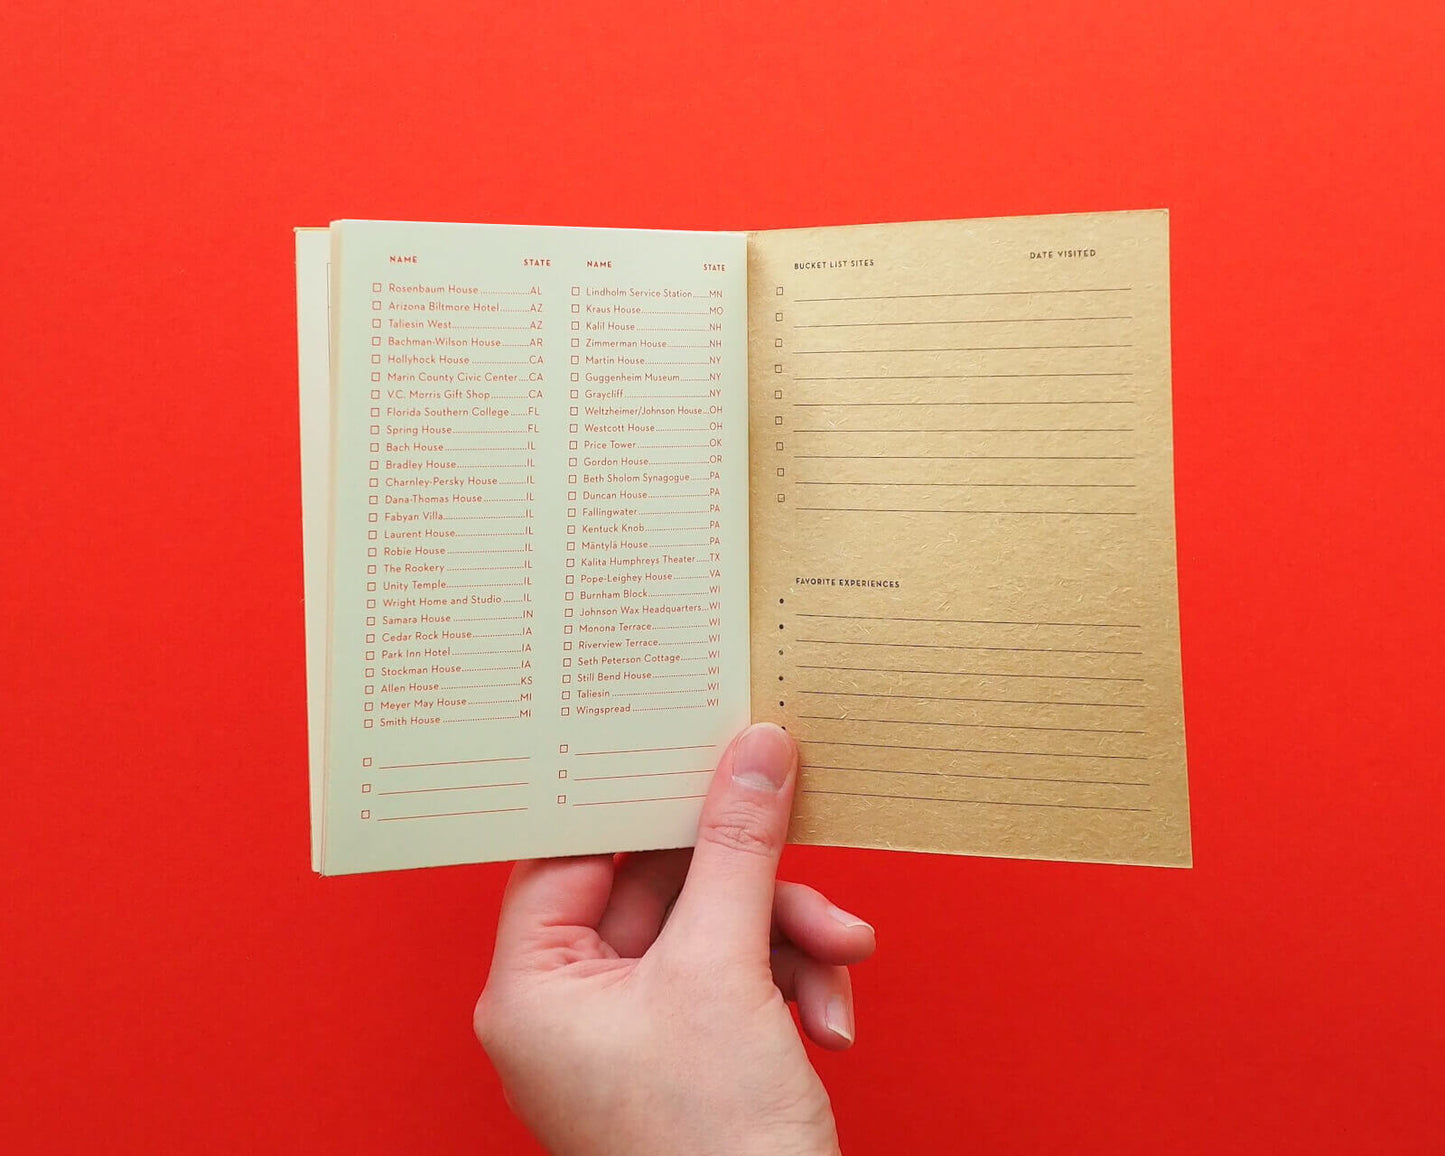 NAME STATE
Rosenbaum House AL
Arizona Biltmore Hotel AZ
Taliesin West AZ
Bachman-Wilson House AR
Hollyhock House CA
Marin County Civic Center CA
V.C. Morris Gift Shop CA
Florida Southern College FL
Spring House FL
Bach House IL
Bradley House IL
Charnley-Persky House IL
Dana-Thomas House IL
Fabyan Villa IL
Laurent House IL
Robie House IL
The Rookery IL
Unity Temple IL
Wright Home and Studio IL
Samara House IN
Cedar Rock House IA
Park Inn Hotel IA
Stockman House IA
Allen House KS
Meyer May House MI
Smith House MI
NAME STATE
Lindholm Service Station MN
Kraus House MO
Kalil House NH
Zimmerman House NH
Martin House NY
Guggenheim Museum NY
Graycliff NY
Weltzheimer/Johnson House OH
Westcott House OH
Price Tower OK
Gordon House OR
Beth Sholom Synagogue PA
Duncan House PA
Fallingwater PA
Kentuck Knob PA
Mäntylä House PA
Kalita Humphreys Theater TX
Pope-Leighey House VA
Burnham Block WI
Johnson Wax Headquarters WI
Monona Terrace WI
Riverview Terrace WI
Seth Peterson Cottage WI
Still Bend House WI
Taliesin WI
Wingspread WI
BUCKET LIST SITES DATE VISITED
FAVORITE EXPERIENCES